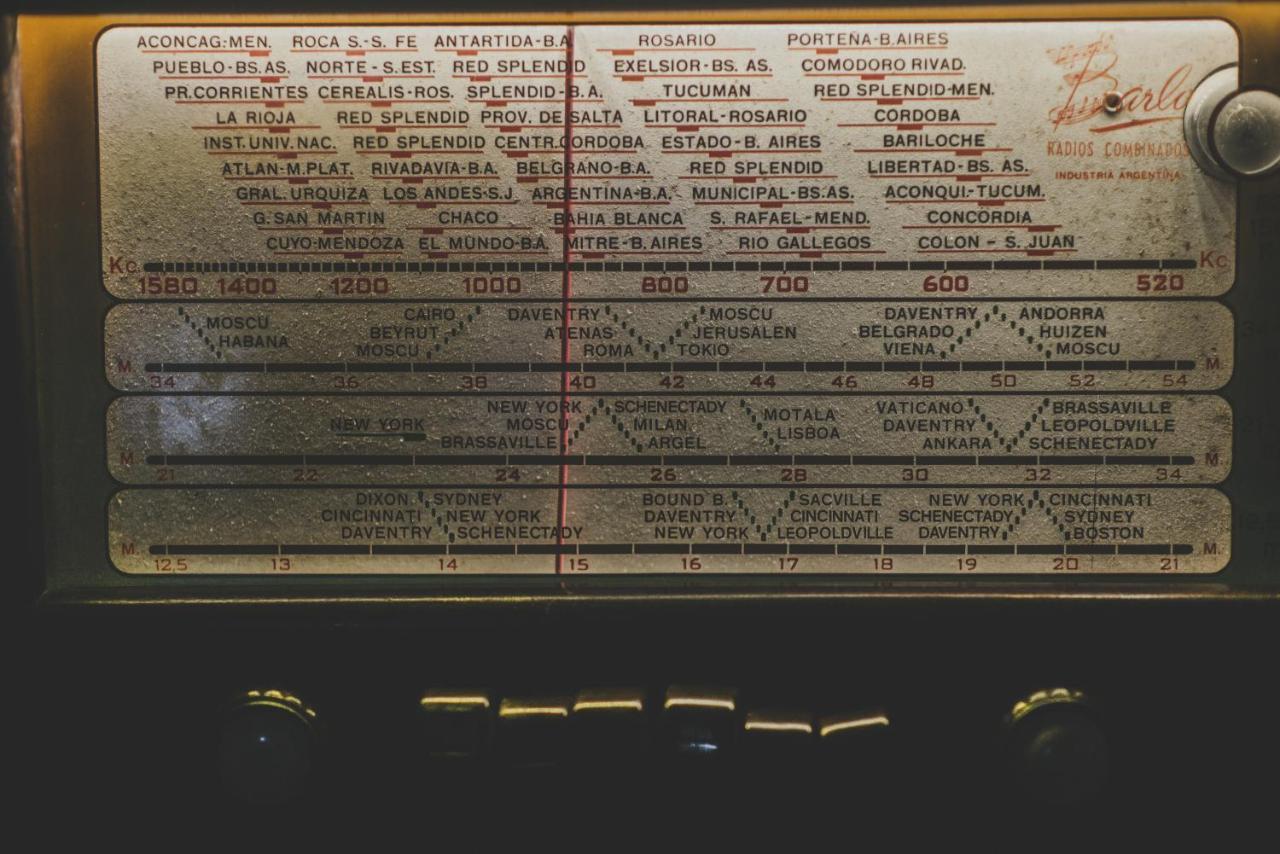 ACONCAG:MEN. ROCA S.-S. FE ANTARTIDA-B.A ROSARIO PORTEÑA-B.AIRES
PUEBLO-BS.AS. NORTE-S.EST. RED SPLENDID EXELSIOR-BS. AS. COMODORO RIVAD.
PR.CORRIENTES CEREALIS-ROS. SPLENDID-B.A. TUCUMAN RED SPLENDID-MEN.
LA RIOJA RED SPLENDID PROV. DE SALTA LITORAL-ROSARIO CORDOBA
INST.UNIV.NAC. RED SPLENDID CENTR.CORDOBA ESTADO-B. AIRES BARILOCHE
ATLAN-M.PLAT. RIVADAVIA-B.A. BELGRANO-B.A. RED SPLENDID LIBERTAD-BS. AS.
GRAL.URQUIZA LOS ANDES-S.J ARGENTINA-B.A. MUNICIPAL-BS.AS. ACONQUI-TUCUM.
G.SAN MARTIN CHACO BAHIA BLANCA S. RAFAEL-MEND. CONCORDIA
CUYO-MENDOZA EL MUNDO-B.A. MITRE-B.AIRES RIO GALLEGOS COLON - S. JUAN
RADIOS COMBINADOS
INDUSTRIA ARGENTINA
Kc. Kc
1580 1400 1200 1000 800 700 600 520
CAIRO DAVENTRY MOSCU DAVENTRY ANDORRA
MOSCU BEYRUT ATENAS JERUSALEN BELGRADO HUIZEN
HABANA MOSCU ROMA TOKIO VIENA MOSCU
M. M.
34 36 38 40 42 44 46 48 50 52 54
NEW YORK SCHENECTADY MOTALA VATICANO BRASSAVILLE
NEW YORK MOSCU MILAN LISBOA DAVENTRY LEOPOLDVILLE
BRASSAVILLE ARGEL ANKARA SCHENECTADY
M. M.
21 22 24 26 28 30 32 34
DIXON SYDNEY BOUND B. SACVILLE NEW YORK CINCINNATI
CINCINNATI NEW YORK DAVENTRY CINCINNATI SCHENECTADY SYDNEY
DAVENTRY SCHENECTADY NEW YORK LEOPOLDVILLE DAVENTRY BOSTON
M. M.
12,5 13 14 15 16 17 18 19 20 21